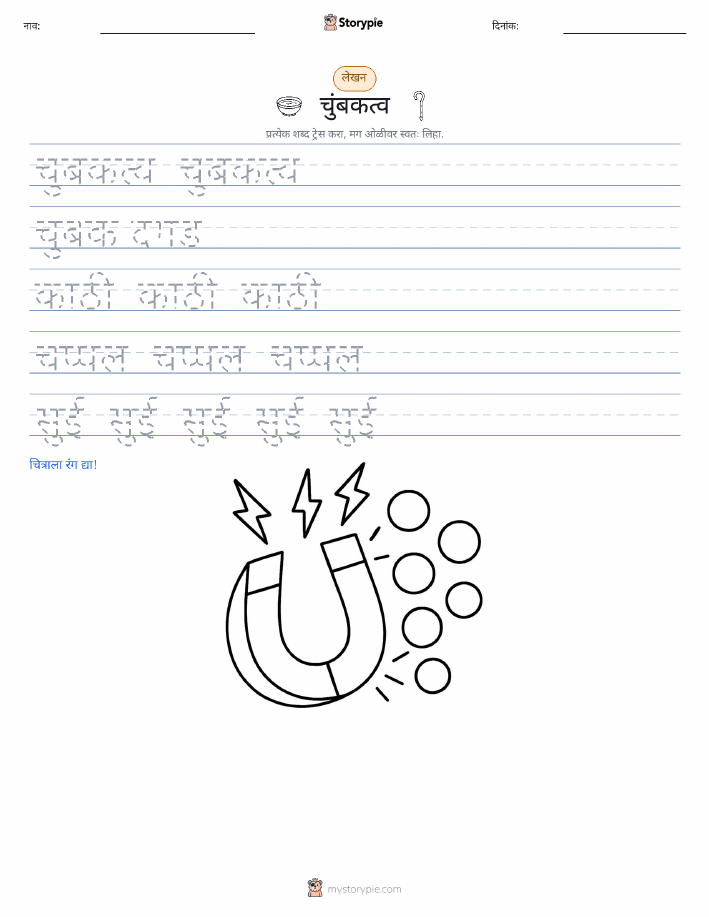 नाव:
Storypie
दिनांक:
लेखन
चुंबकत्व
प्रत्येक शब्द ट्रेस करा, मग ओळीवर स्वतः लिहा.
चुबकत्व चुबकत्व
चुबक दगड
काठी काठी काठी
चप्पल चप्पल चप्पल
सुई सुई सुई सुई सुई
चित्राला रंग द्या!
mystorypie.com